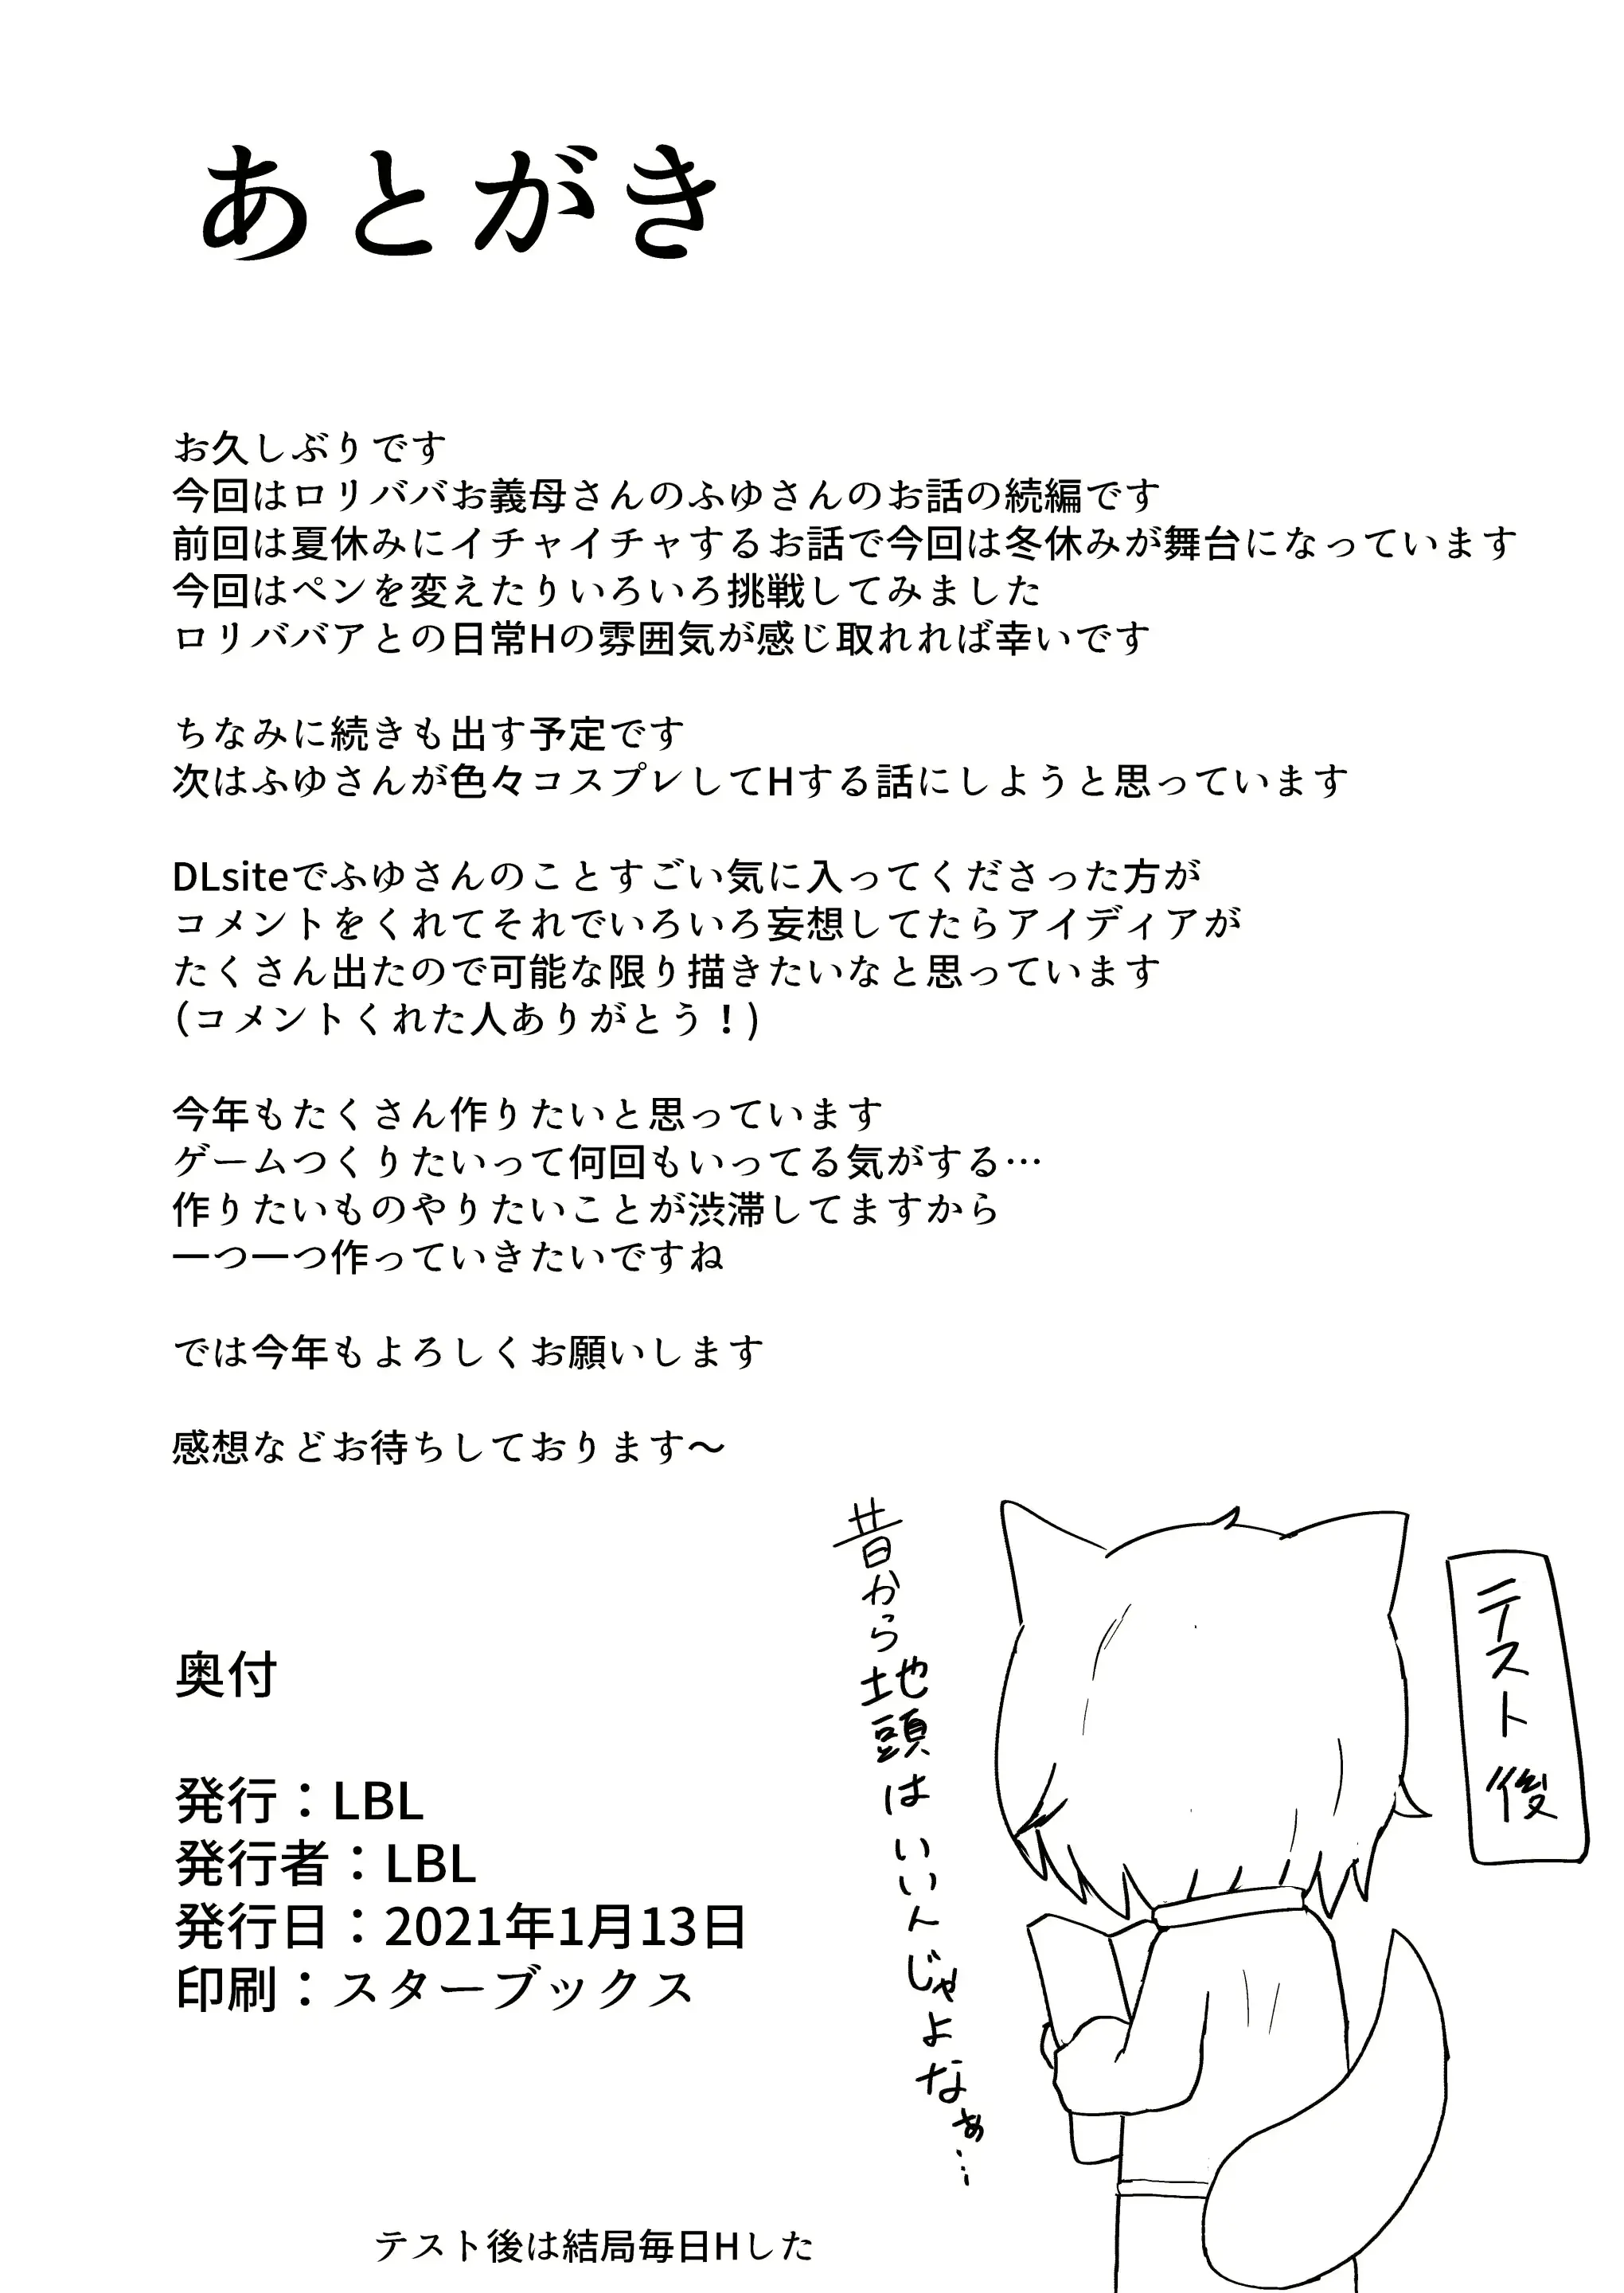 あとがき
お久しぶりです
今回はロリババお義母さんのふゆさんのお話の続編です
前回は夏休みにイチャイチャするお話で今回は冬休みが舞台になっています
今回はペンを変えたりいろいろ挑戦してみました
ロリババアとの日常Hの雰囲気が感じ取れれば幸いです
ちなみに続きも出す予定です
次はふゆさんが色々コスプレしてHする話にしようと思っています
DLsiteでふゆさんのことすごい気に入ってくださった方が
コメントをくれてそれでいろいろ妄想してたらアイディアが
たくさん出たので可能な限り描きたいなと思っています
(コメントくれた人ありがとう！)
今年もたくさん作りたいと思っています
ゲームつくりたいって何回もいってる気がする…
作りたいものやりたいことが渋滞してますから
一つ一つ作っていきたいですね
では今年もよろしくお願いします
感想などお待ちしております～
テスト後
昔から地頭はいいんじゃよなぁ…
奥付
発行：LBL
発行者：LBL
発行日：2021年1月13日
印刷：スターブックス
テスト後は結局毎日Hした